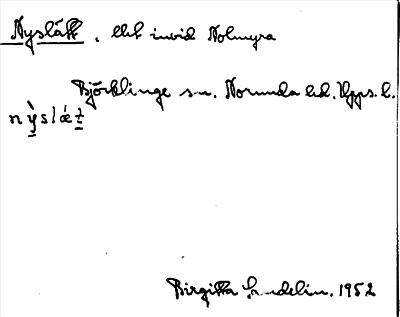 Nyslätt, ebl invid Nolmyra
Björklinge sn. Norunda hd. Upps. l.
nỳslǽt
Birgitta Sundelin. 1952